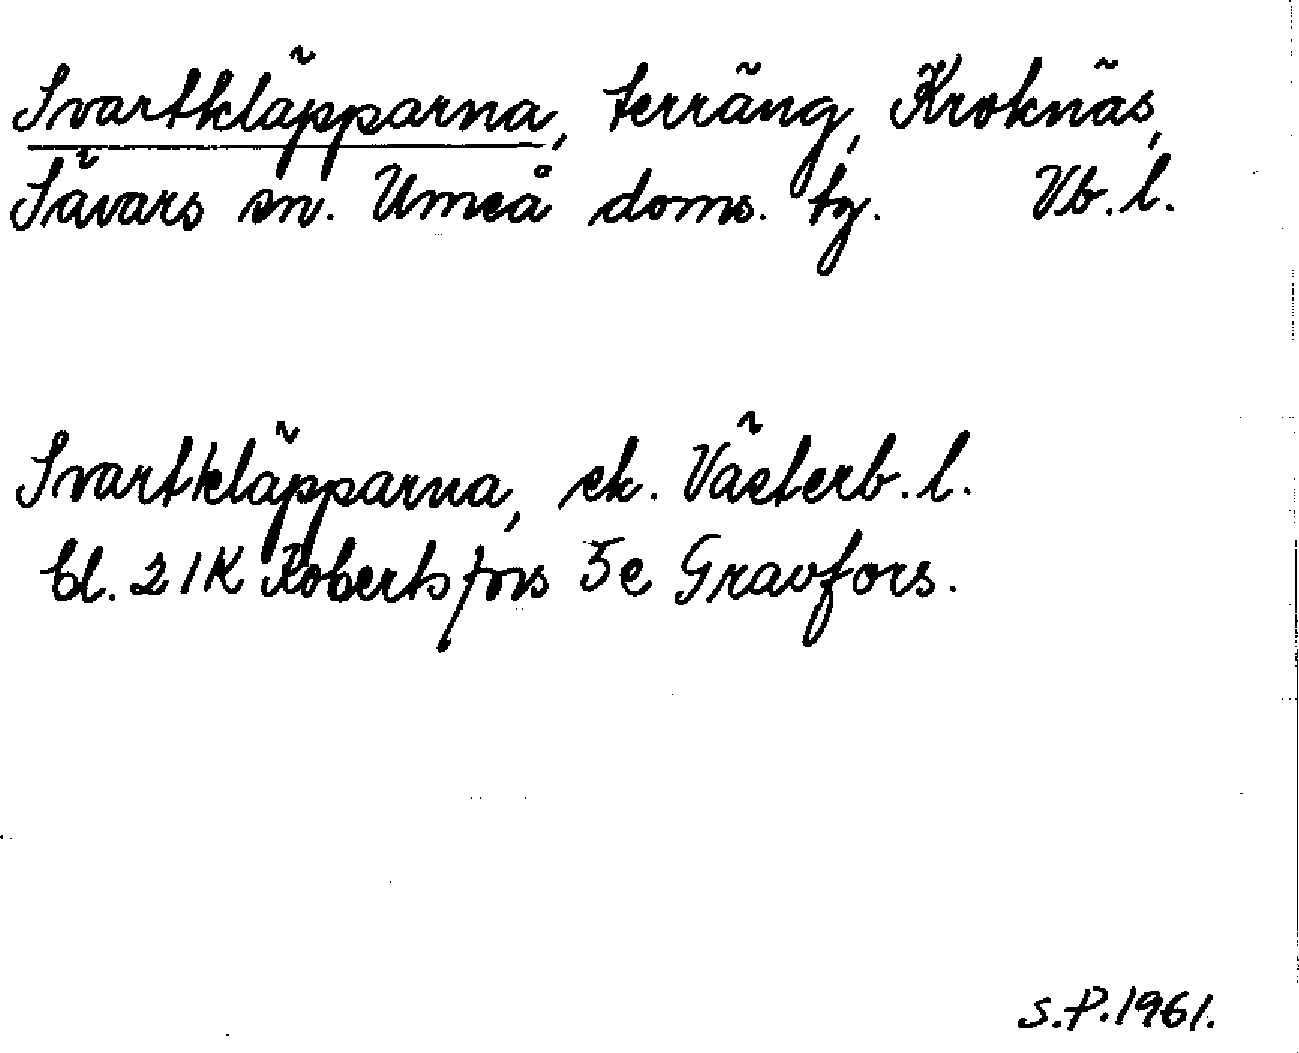 Svartkläpparna, terräng, Kroknäs,
Sävars sn. Umeå doms. tg. Vb. l.
Svartkläpparna, ek. Västerb. l.
bl. 21K Robertsfors 5e Gravfors.
S.P. 1961.